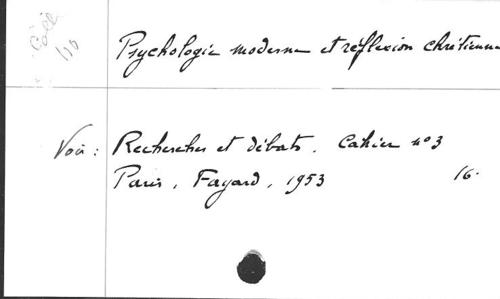 Coll
1/10
Psychologie moderne et réflexion chrétienne
Voir : Recherches et débats. Cahier n°3
Paris, Fayard, 1953 16.